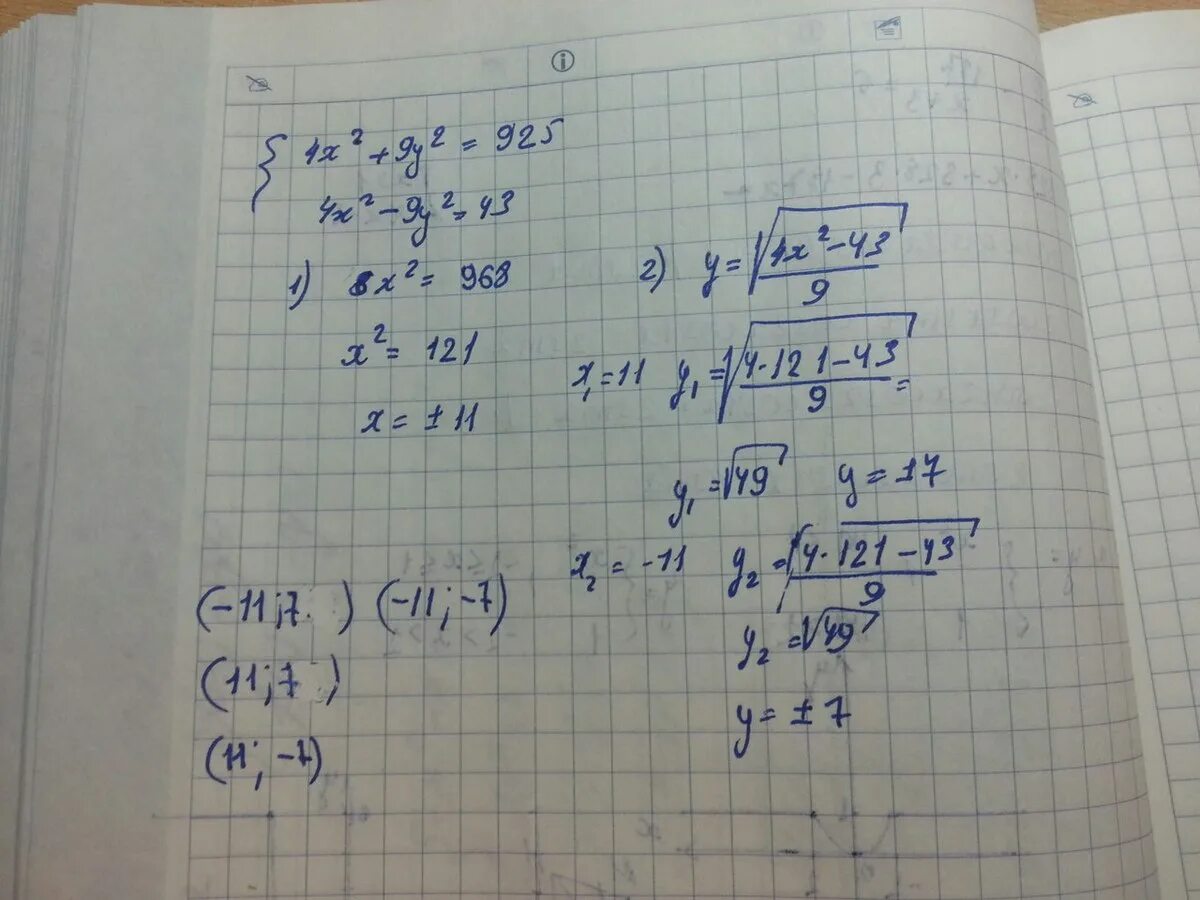 4x² + 9y² = 925
4x² - 9y² = 43
1) 8x² = 968
x² = 121
x = ±11
2) y = √(4x² - 43)/9
x₁ = 11 y₁ = √(4·121 - 43)/9 =
y₁ = √49 y = ±7
x₂ = -11 y₂ = √(4·121 - 43)/9
y₂ = √49
y = ±7
(-11; 7 ) (-11; -7)
(11; 7 )
(11; -7)